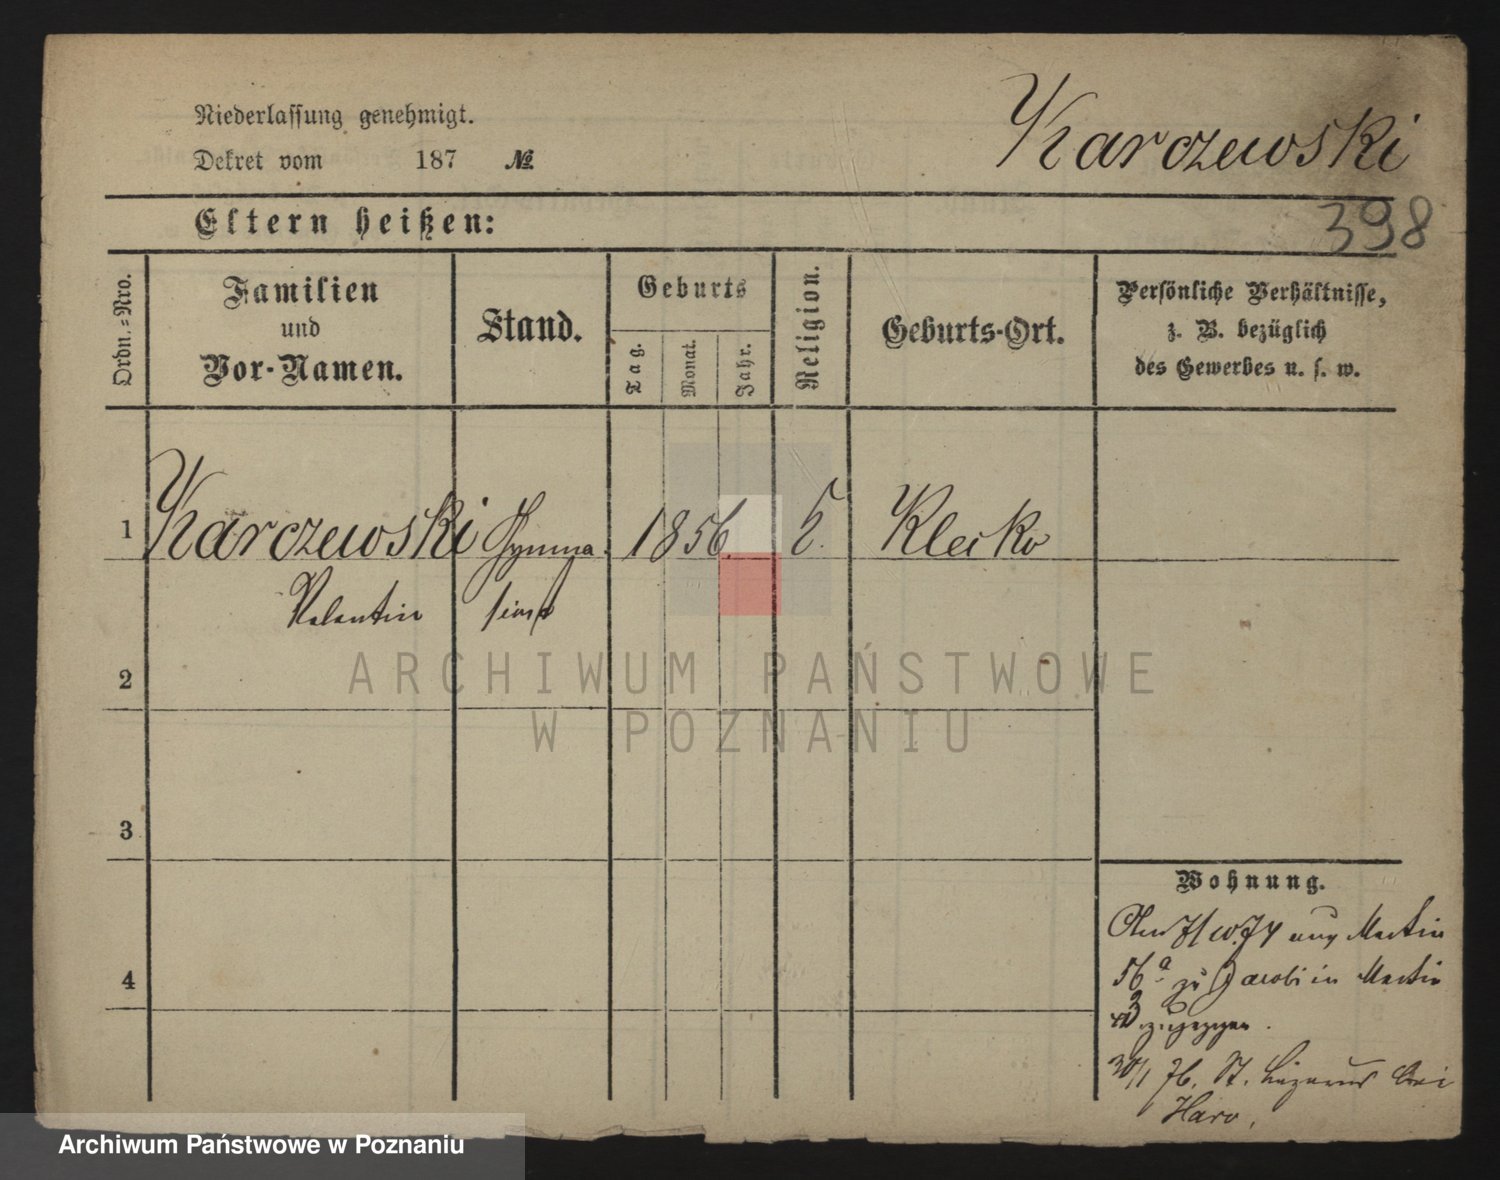 Niederlassung genehmigt.
Dekret vom 187 №
Karczewski
398
Eltern heißen:
Ordn.=Nro.
Familien
und
Vor-Namen.
Stand.
Geburts
Tag.
Monat.
Jahr.
Religion.
Geburts-Ort.
Persönliche Verhältnisse,
z. B. bezüglich
des Gewerbes u. s. w.
1 Karczewski Gymna 1856. Klecko
Valentin siast
2
3
4
ARCHIWUM PAŃSTWOWE
W POZNANIU
Wohnung.
Martin
56 a zu Jacobi in Martin
3 zugezogen.
30/1 76. St. Lazarus bei
Haro.
Archiwum Państwowe w Poznaniu